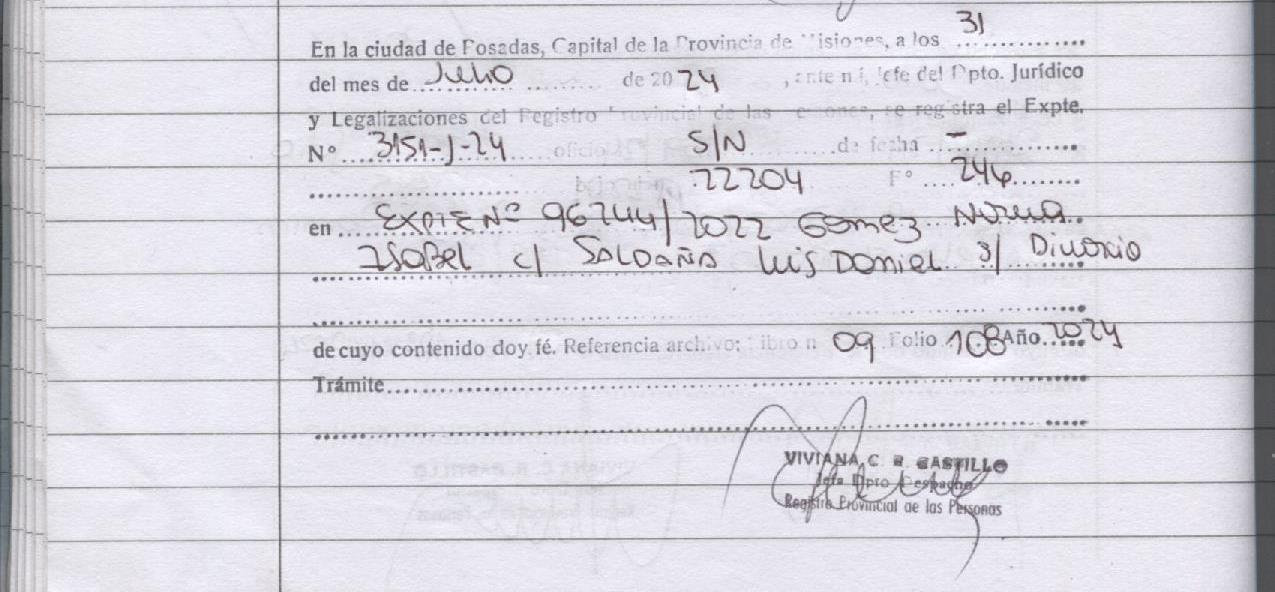 En la ciudad de Posadas, Capital de la Provincia de Misiones, a los 31
del mes de Julio de 2024, ante mí, Jefe del Dpto. Jurídico
y Legalizaciones del Registro Provincial de las Personas, se registra el Expte.
N° 3151-J-24 oficio S/N de fecha -
22204 F° 246
en EXPTE Nº 96744/2022 GOMEZ Norma
ISABEL c/ SALDAÑA LUIS DANIEL S/ Divorcio
de cuyo contenido doy fé. Referencia archivo: Libro n 09 Folio 108 Año 2024
Trámite
VIVIANA C. R. CASTILLO
Jefa Dpto Despacho
Registro Provincial de las Personas